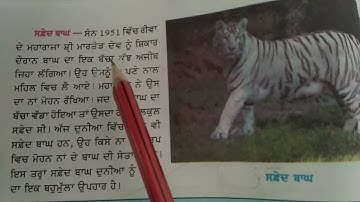 ਸਫ਼ੇਦ ਬਾਘ — ਸੰਨ 1951 ਵਿੱਚ ਰੀਵਾ
ਦੇ ਮਹਾਰਾਜਾ ਸ਼੍ਰੀ ਮਾਰਤੰਡ ਦੇਵ ਨੂੰ ਸ਼ਿਕਾਰ
ਦੌਰਾਨ ਬਾਘ ਦਾ ਇਕ ਬੱਚਾ ਅਜੀਬ
ਜਿਹਾ ਲੱਗਿਆ। ਉਹ ਨਾਲ
ਮਹਿਲ ਵਿਚ ਲੈ ਆਏ। ਨੇ ਉਸ
ਦਾ ਨਾਂ ਮੋਹਨ ਰੱਖਿਆ। ਜਦ ਘ ਦਾ
ਬੱਚਾ ਵੱਡਾ ਹੋਇਆ ਤਾਂ ਉਸਦਾ
ਸਫ਼ੇਦ ਸੀ। ਅੱਜ ਦੁਨੀਆ ਵਿੱਚ ਵੀ
ਸਫ਼ੇਦ ਬਾਘ ਹਨ, ਉਹ ਕਿਸੇ ਨਾ
ਵਿਚ ਮੋਹਨ ਨਾਂ ਦੇ ਬਾਘ ਦੀ
ਇਸ ਤਰ੍ਹਾਂ ਸਫ਼ੇਦ ਬਾਘ ਦੁਨੀਆ ਨੂੰ
ਦਾ ਇਕ ਬਹੁਮੁੱਲਾ ਉਪਹਾਰ ਹੈ।
ਸਫ਼ੇਦ ਬਾਘ